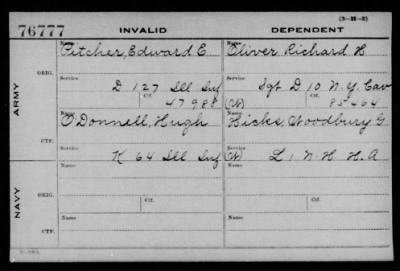 (3-H-2)
76777 INVALID DEPENDENT
Name Pitcher, Edward E Name Oliver Richard H
ARMY ORIG. Service D 127 Ill Inf Service Sgt D 10 N.Y. Cav
Ctf. 47988 (W) Ctf. 85464
Name O'Donnell, Hugh Name Hicks, Woodbury G
CTF. Service K 64 Ill Inf (W) Service L 1 N.H. H.A
NAVY ORIG. Name Name
Service Ctf. Service Ctf.
CTF. Name Name
Service Service